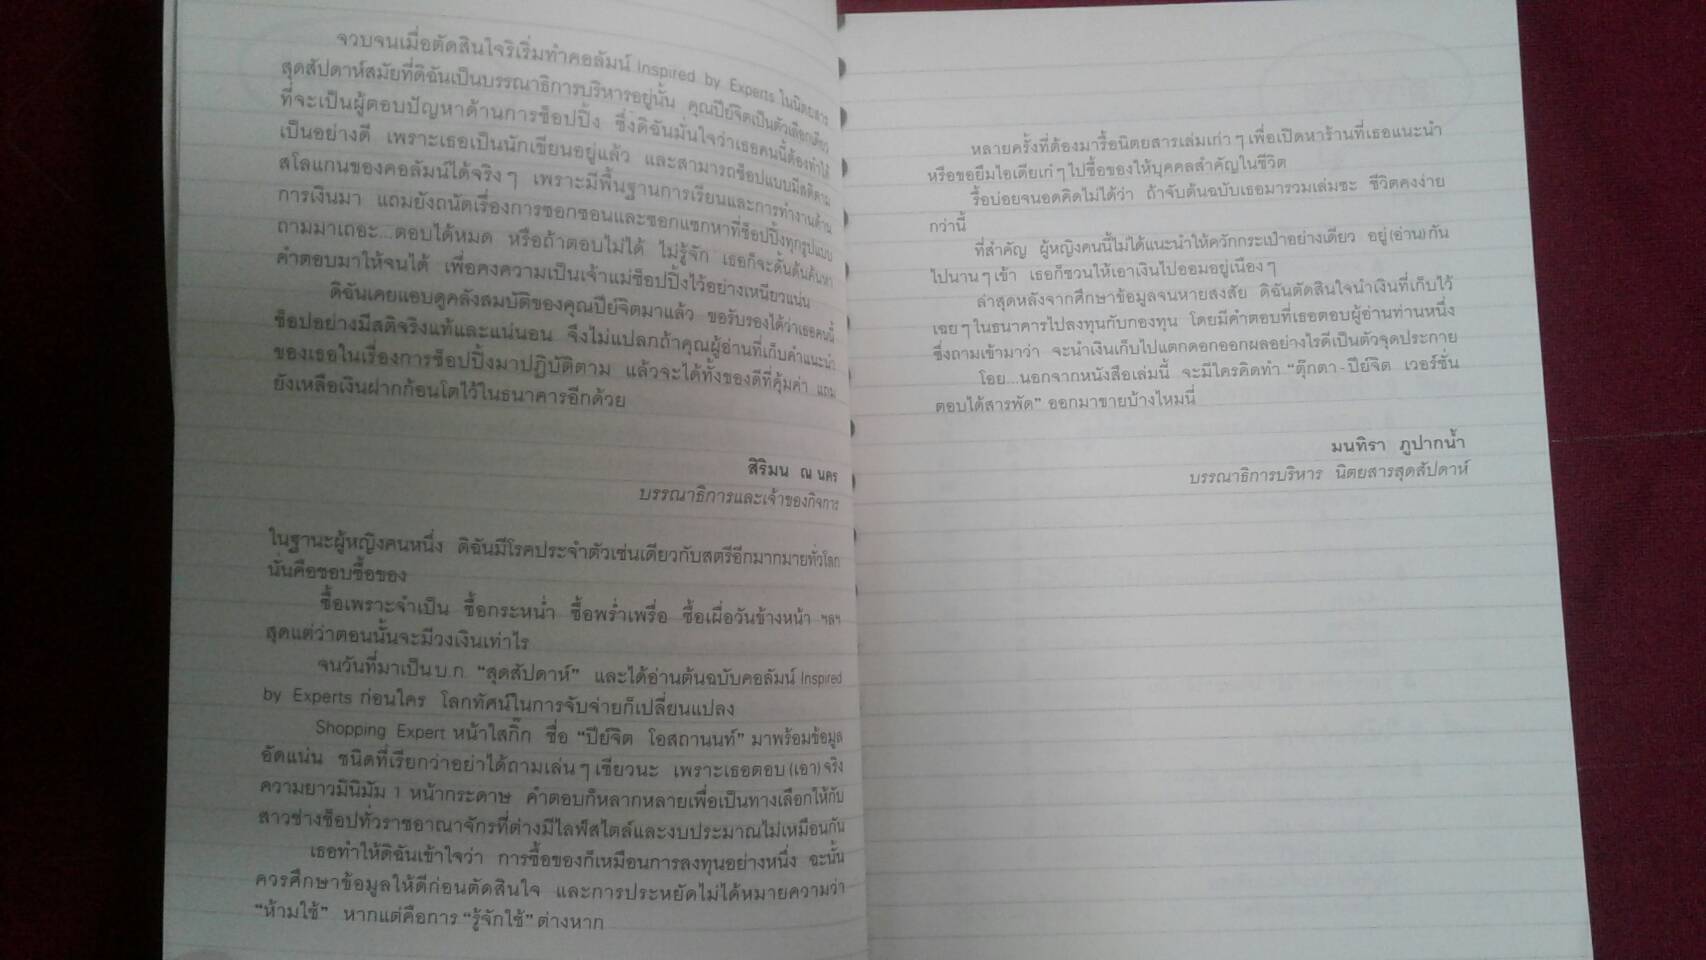 จวบจนเมื่อตัดสินใจริเริ่มทำคอลัมน์ Inspired by Experts ในนิตยสาร
สุดสัปดาห์สมัยที่ดิฉันเป็นบรรณาธิการบริหารอยู่นั้น คุณปีย์จิตเป็นตัวเลือกเดียว
ที่จะเป็นผู้ตอบปัญหาด้านการช็อปปิ้ง ซึ่งดิฉันมั่นใจว่าเธอคนนี้ต้องทำได้
เป็นอย่างดี เพราะเธอเป็นนักเขียนอยู่แล้ว และสามารถช็อปแบบมีสติตาม
สโลแกนของคอลัมน์ได้จริงๆ เพราะมีพื้นฐานการเรียนและการทำงานด้าน
การเงินมา แถมยังถนัดเรื่องการซอกซอนและซอกแซกหาที่ช็อปปิ้งทุกรูปแบบ
ถามมาเถอะ...ตอบได้หมด หรือถ้าตอบไม่ได้ ไม่รู้จัก เธอก็จะดั้นด้นค้นหา
คำตอบมาให้จนได้ เพื่อคงความเป็นเจ้าแม่ช็อปปิ้งไว้อย่างเหนียวแน่น
ดิฉันเคยแอบดูคลังสมบัติของคุณปีย์จิตมาแล้ว ขอรับรองได้ว่าเธอคนนี้
ช็อปอย่างมีสติจริงแท้และแน่นอน จึงไม่แปลกถ้าคุณผู้อ่านที่เก็บคำแนะนำ
ของเธอในเรื่องการช็อปปิ้งมาปฏิบัติตาม แล้วจะได้ทั้งของดีที่คุ้มค่า แถม
ยังเหลือเงินฝากก้อนโตไว้ในธนาคารอีกด้วย
สิริมน ณ นคร
บรรณาธิการและเจ้าของกิจการ
ในฐานะผู้หญิงคนหนึ่ง ดิฉันมีโรคประจำตัวเช่นเดียวกับสตรีอีกมากมายทั่วโลก
นั่นคือชอบซื้อของ
ซื้อเพราะจำเป็น ซื้อกระหน่ำ ซื้อพร่ำเพรื่อ ซื้อเผื่อวันข้างหน้า ฯลฯ
สุดแต่ว่าตอนนั้นจะมีวงเงินเท่าไร
จนวันที่มาเป็น บ.ก. “สุดสัปดาห์” และได้อ่านต้นฉบับคอลัมน์ Inspired
by Experts ก่อนใคร โลกทัศน์ในการจับจ่ายก็เปลี่ยนแปลง
Shopping Expert หน้าใสกิ๊ก ชื่อ “ปีย์จิต โอสถานนท์” มาพร้อมข้อมูล
อัดแน่น ชนิดที่เรียกว่าอย่าได้ถามเล่นๆ เชียวนะ เพราะเธอตอบ (เอา) จริง
ความยาวมินิมัม 1 หน้ากระดาษ คำตอบก็หลากหลายเพื่อเป็นทางเลือกให้กับ
สาวช่างช็อปทั่วราชอาณาจักรที่ต่างมีไลฟ์สไตล์และงบประมาณไม่เหมือนกัน
เธอทำให้ดิฉันเข้าใจว่า การซื้อของก็เหมือนการลงทุนอย่างหนึ่ง ฉะนั้น
ควรศึกษาข้อมูลให้ดีก่อนตัดสินใจ และการประหยัดไม่ได้หมายความว่า
“ห้ามใช้” หากแต่คือการ “รู้จักใช้” ต่างหาก
หลายครั้งที่ต้องมารื้อนิตยสารเล่มเก่าๆ เพื่อเปิดหาร้านที่เธอแนะนำ
หรือขอยืมไอเดียเก๋ๆ ไปซื้อของให้บุคคลสำคัญในชีวิต
รื้อบ่อยจนอดคิดไม่ได้ว่า ถ้าจับต้นฉบับเธอมารวมเล่มซะ ชีวิตคงง่าย
กว่านี้
ที่สำคัญ ผู้หญิงคนนี้ไม่ได้แนะนำให้ควักกระเป๋าอย่างเดียว อยู่ (อ่าน) กัน
ไปนานๆ เข้า เธอก็ชวนให้เอาเงินไปออมอยู่เนืองๆ
ล่าสุดหลังจากศึกษาข้อมูลจนหายสงสัย ดิฉันตัดสินใจนำเงินที่เก็บไว้
เฉยๆ ในธนาคารไปลงทุนกับกองทุน โดยมีคำตอบที่เธอตอบผู้อ่านท่านหนึ่ง
ซึ่งถามเข้ามาว่า จะนำเงินเก็บไปแตกดอกออกผลอย่างไรดีเป็นตัวจุดประกาย
โอย...นอกจากหนังสือเล่มนี้ จะมีใครคิดทำ “ตุ๊กตา - ปีย์จิต เวอร์ชั่น
ตอบได้สารพัด” ออกมาขายบ้างไหมนี่
มนทิรา ภูปากน้ำ
บรรณาธิการบริหาร นิตยสารสุดสัปดาห์